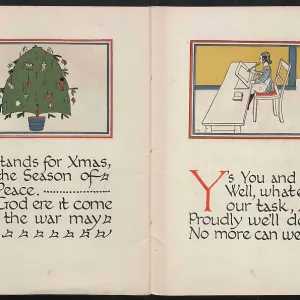 tands for Xmas,
the Season of
Peace.
God ere it come
the war may
Y's You and
Well, what
our task,
Proudly we'll d
No more can we